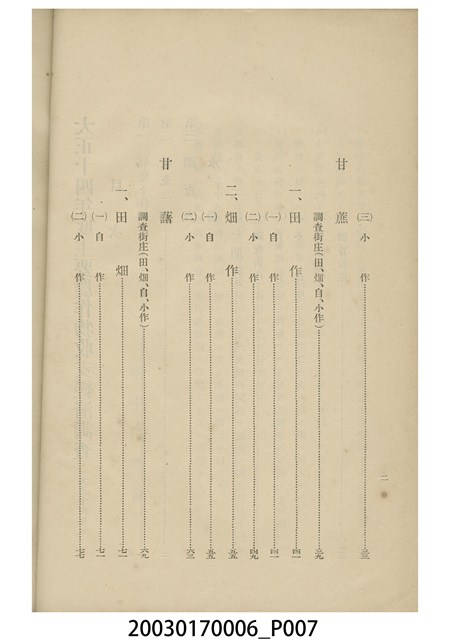 ㈢ 小作……三三
甘蔗
調査街庄(田、畑、自、小作)……三九
一、田作……四一
㈠ 自作……四一
㈡ 小作……四九
二、畑作……五五
㈠ 自作……五五
㈡ 小作……六三
甘藷
調査街庄(田、畑、自、小作)……六九
一、田畑……七一
㈠ 自作……七一
㈡ 小作……七七
二
20030170006_P007